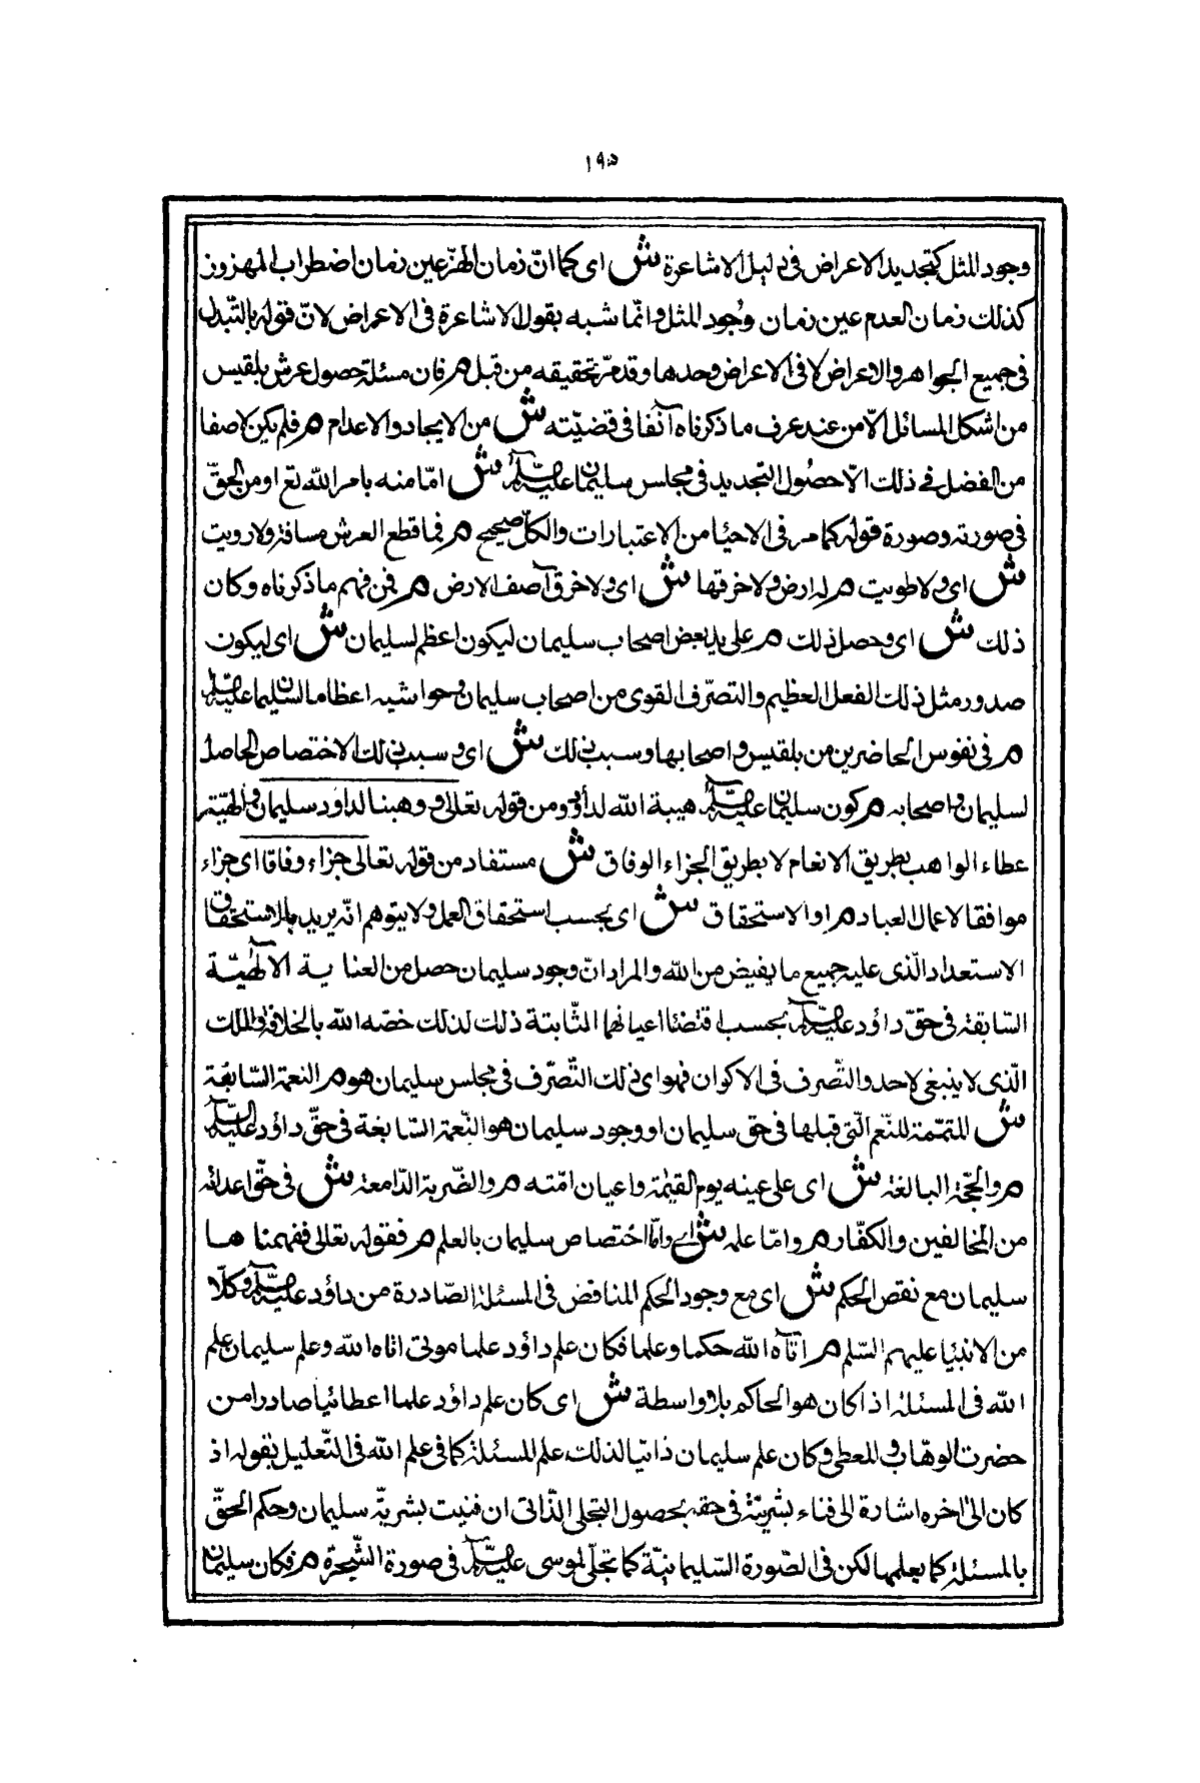 ١٩٥
وجود المثل كتجديد الاعراض فى دليل الاشاعرة ش اى كما انّ زمان الهزّ عين زمان اضطراب المهزوز
كذلك زمان العدم عين زمان وجود المثل وانّما شبه بقول الاشاعرة فى الاعراض لانّ قوله بالتّبدل
فى جميع الجواهر والاعراض لا فى الاعراض وحدها وقد مرّ تحقيقه من قبل م فان مسئلة حصول عرش بلقيس
من اشكل المسائل الّا من عند عرف ما ذكرناه آنفا فى قضيّته ش من الايجاد والاعدام م فلم يكن لاصفا
من الفضل فى ذلك الّا حصُول التجديد فى مجلس سليمان عليه السّلم ش امّا منه بامر الله تع او من الحقّ
فى صورته وصورة قوله كما مر فى الاحيا من الاعتبارات والكلّ صحيح م فما قطع العرش مسافة ولا رويت
ش اى ولا طويت م له ارض ولا خرقها ش اى ولا خرق آصف الارض م فمن فهم ما ذكرناه وكان
ذلك ش اى وحصل ذلك م على يد بعض اصحاب سليمان ليكون اعظم لسليمان ش اى ليكون
صدور مثل ذلك الفعل العظيم والتصرّف القوى من اصحاب سليمان وحواشيه اعظاما لسليمان عليه السّلم
م فى نفوس الحاضرين من بلقيس واصحابها وسبب ذلك ش اى وسبب ذلك الاختصاص الحاصل
لسليمان واصحابه م كون سليمان عليه السّلم هيبة الله لداؤد ومن قوله تعالى ووهبنا لداؤد سليمان والهبة
عطاء الواهب بطريق الانعام لا بطريق الجزاء الوفاق ش مستفاد من قوله تعالى جزاء وفاقا اى جزاء
موافقا لاعمال العباد م او الاستحقاق ش اى بحسب استحقاق العمل ولا يتوهم انّه يريد بالاستحقاق
الاستعداد الّذى عليه جميع ما يفيض من الله والمراد انّ وجود سليمان حصل من العناية الآلهيّة
السّابقة فى حقّ داؤد عليه السّلم بحسب اقتضاء اعيانهما الثّابتة ذلك لذلك خصّه الله بالخلافة والملك
الّذى لا ينبغى لاحد والتّصرف فى الاكوان فهو اى ذلك التّصرّف فى مجلس سليمان هو م النعمة السّابغة
ش المتمّمة للنّعم الّتى قبلها فى حق سليمان او وجود سليمان هو النّعمة السّابغة فى حقّ داؤد عليه السّلم
م والحجّة البالغة ش اى على عينه يوم القيٰمة واعيان امّته م والضّربة الدّامغة ش فى حقّ اعدائه
من المخالفين والكفّار م وامّا علمه ش اى وامّا اختصاص سليمان بالعلم م فقوله تعالى ففهمناها
سليمان مع نقص الحكم ش اى مع وجود الحكم المناقض فى المسئلة الصّادرة من داؤد عليه السّلم وكلّا
من الانبيا عليهم السّلم م آتاه الله حكما وعلما فكان علم داؤد علما موتى اتاه الله وعلم سليمان علم
الله فى المسئلة اذ اكان هو الحاكم بلا واسطة ش اى كان علم داؤد علما اعطائيا صادرا من
حضرت الوهّاب والمعطى وكان علم سليمان ذاتيا لذلك علم المسئلة كما فى علم الله فى التّعليل بقوله اذ
كان الى اخره اشارة الى فناء بشريّة فى حقه بحصول التجلى الذّاتى ان فنيت بشريّة سليمان وحكم الحقّ
بالمسئلة كما يعلمها لكن فى الصّورة السّليمانيّة كما تجلّى لموسى عليه السّلم فى صورة الشّجرة م فكان سليمان